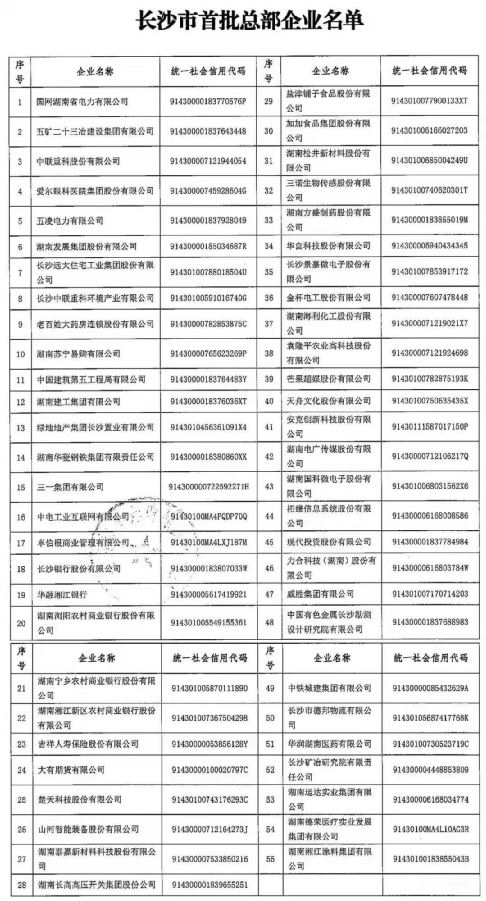 长沙市首批总部企业名单
序号 企业名称 统一社会信用代码 序号 企业名称 统一社会信用代码
1 国网湖南省电力有限公司 91430000183770576P
2 五矿二十三冶建设集团有限公司 914300001837643448
3 中联重科股份有限公司 914300007121944054
4 爱尔眼科医院集团股份有限公司 91430000745928604G
5 五凌电力有限公司 914300001837928049
6 湖南发展集团股份有限公司 91430000185034687R
7 长沙远大住宅工业集团股份有限公司 91430100788018504U
8 长沙中联重科环境产业有限公司 91430100591016740G
9 老百姓大药房连锁股份有限公司 91430000782853875C
10 湖南苏宁易购有限公司 91430000765623269P
11 中国建筑第五工程局有限公司 91430000183764483Y
12 湖南建工集团有限公司 9143000018376036XT
13 绿地地产集团长沙置业有限公司 9143010456361091X4
14 湖南华菱钢铁集团有限责任公司 9143000018380860XX
15 三一集团有限公司 91430000722592271H
16 中电工业互联网有限公司 91430100MA4PQDP70Q
17 卓伯根商业管理有限公司 91430100MA4LXJ187M
18 长沙银行股份有限公司 91430000183807033W
19 华融湘江银行 914300005617419921
20 湖南浏阳农村商业银行股份有限公司 914301005549155361
29 盐津铺子食品股份有限公司 9143010077900133XT
30 加加食品集团股份有限公司 914301006166027203
31 湖南松井新材料股份有限公司 91430100685004249U
32 三诺生物传感股份有限公司 91430100740620301T
33 湖南方盛制药股份有限公司 91430000183855019M
34 华自科技股份有限公司 914300006940434345
35 长沙景嘉微电子股份有限公司 914301007853917172
36 金杯电工股份有限公司 914300007607478448
37 湖南海利化工股份有限公司 9143000071219021X7
38 袁隆平农业高科技股份有限公司 914300007121924698
39 芒果超媒股份有限公司 91430100782875193K
40 天舟文化股份有限公司 91430100750635435X
41 安克创新科技股份有限公司 91430111587017150P
42 湖南电广传媒股份有限公司 91430000712106217Q
43 湖南国科微电子股份有限公司 9143010068031562X6
44 拓维信息系统股份有限公司 914300006168008586
45 现代投资股份有限公司 914300001837784984
46 力合科技（湖南）股份有限公司 91430000616803784W
47 威胜集团有限公司 914301007170714203
48 中国有色金属长沙勘测设计研究院有限公司 914300001837688983
序号 企业名称 统一社会信用代码 序号 企业名称 统一社会信用代码
21 湖南宁乡农村商业银行股份有限公司 91430100587011189D
22 湖南湘江新区农村商业银行股份有限公司 914301007367504298
23 吉祥人寿保险股份有限公司 91430000053856128Y
24 大有期货有限公司 91430000100020797C
25 楚天科技股份有限公司 91430100743176293C
26 山河智能装备股份有限公司 91430000712164273J
27 湖南泰嘉新材料科技股份有限公司 914300007533850216
28 湖南长高高压开关集团股份公司 914300001839655251
49 中铁城建集团有限公司 91430000085432629A
50 长沙市德邦物流有限公司 91430105687417768K
51 华润湖南医药有限公司 91430100730523719C
52 长沙矿冶研究院有限责任公司 914300004448853809
53 湖南运达实业集团有限公司 914300006168034774
54 湖南德荣医疗实业发展集团有限公司 91430100MA4L10AG3R
55 湖南湘江涂料集团有限公司 91430100183855043B